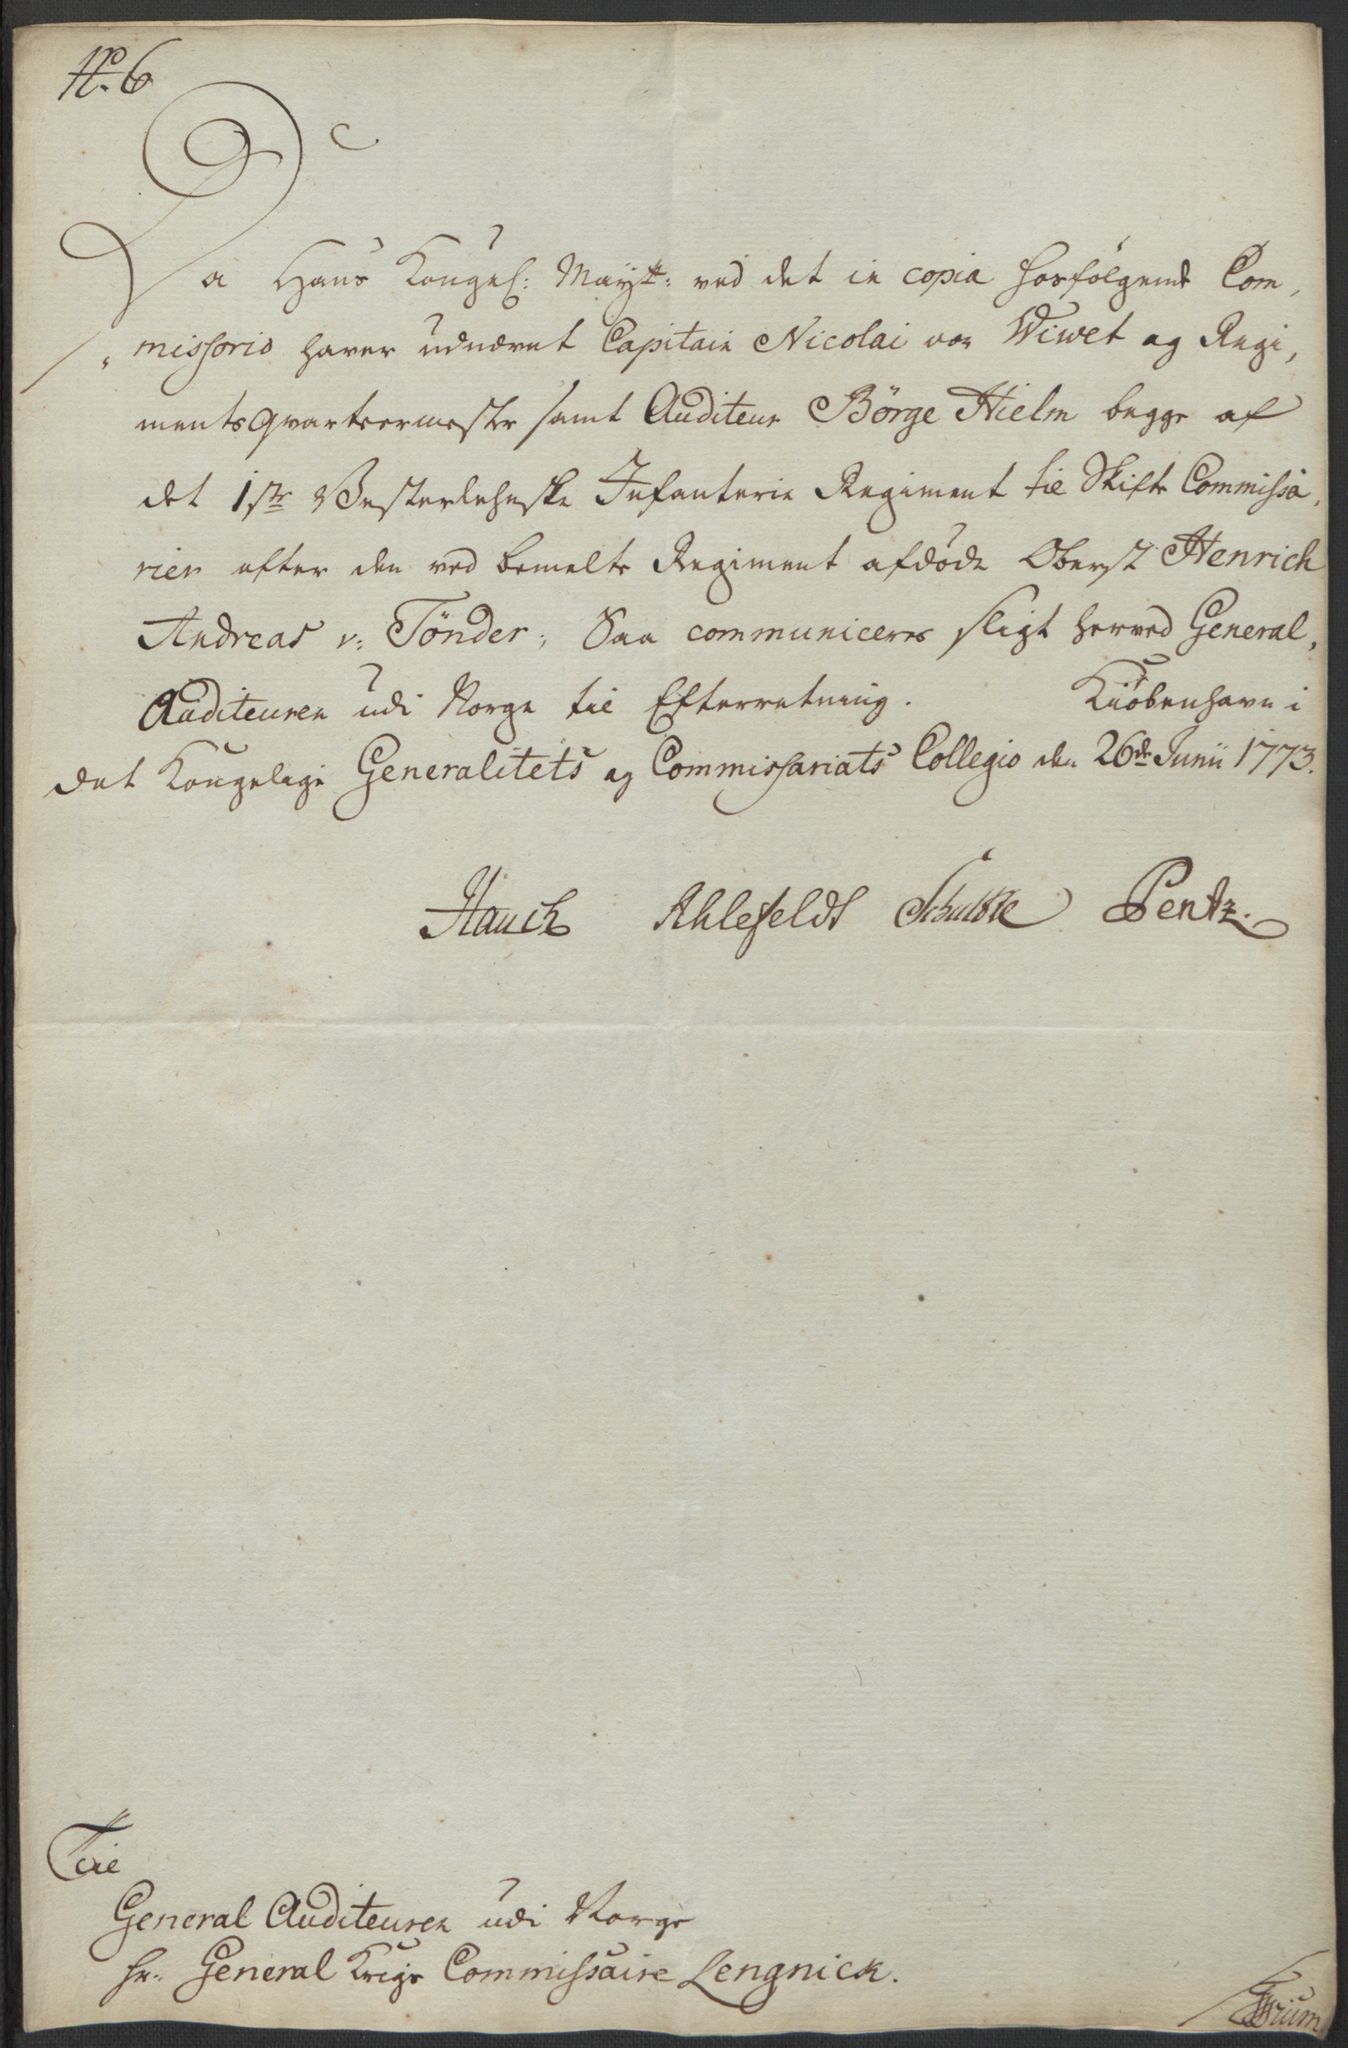 No. 6
Da Hans Kongel: Mayt: ved det in copia hosfølgende Com,
missorio haver udnævnt Capitain Nicolai von Wiwet og Regi,
mentsqvarteermester samt Auditeur Börge Hielm begge af
det 1ste Vesterlehnske Infanterie Regiment til Skifte Commissa,
rier efter den ved bemelte Regiment afdöde Oberst Henrich
Andreas v: Tönder; Saa communiceres sligt herved General,
Auditeuren udi Norge til Efterretning. Kiöbenhavn i
det Kongelige Generalitets og Commissariats Collegio den 26de Junii 1773.
Hauch Ahlefeldt Schultze Pentz.
Til
General Auditeuren udi Norge
Hr. General Krigs Commissaire Lengnick.